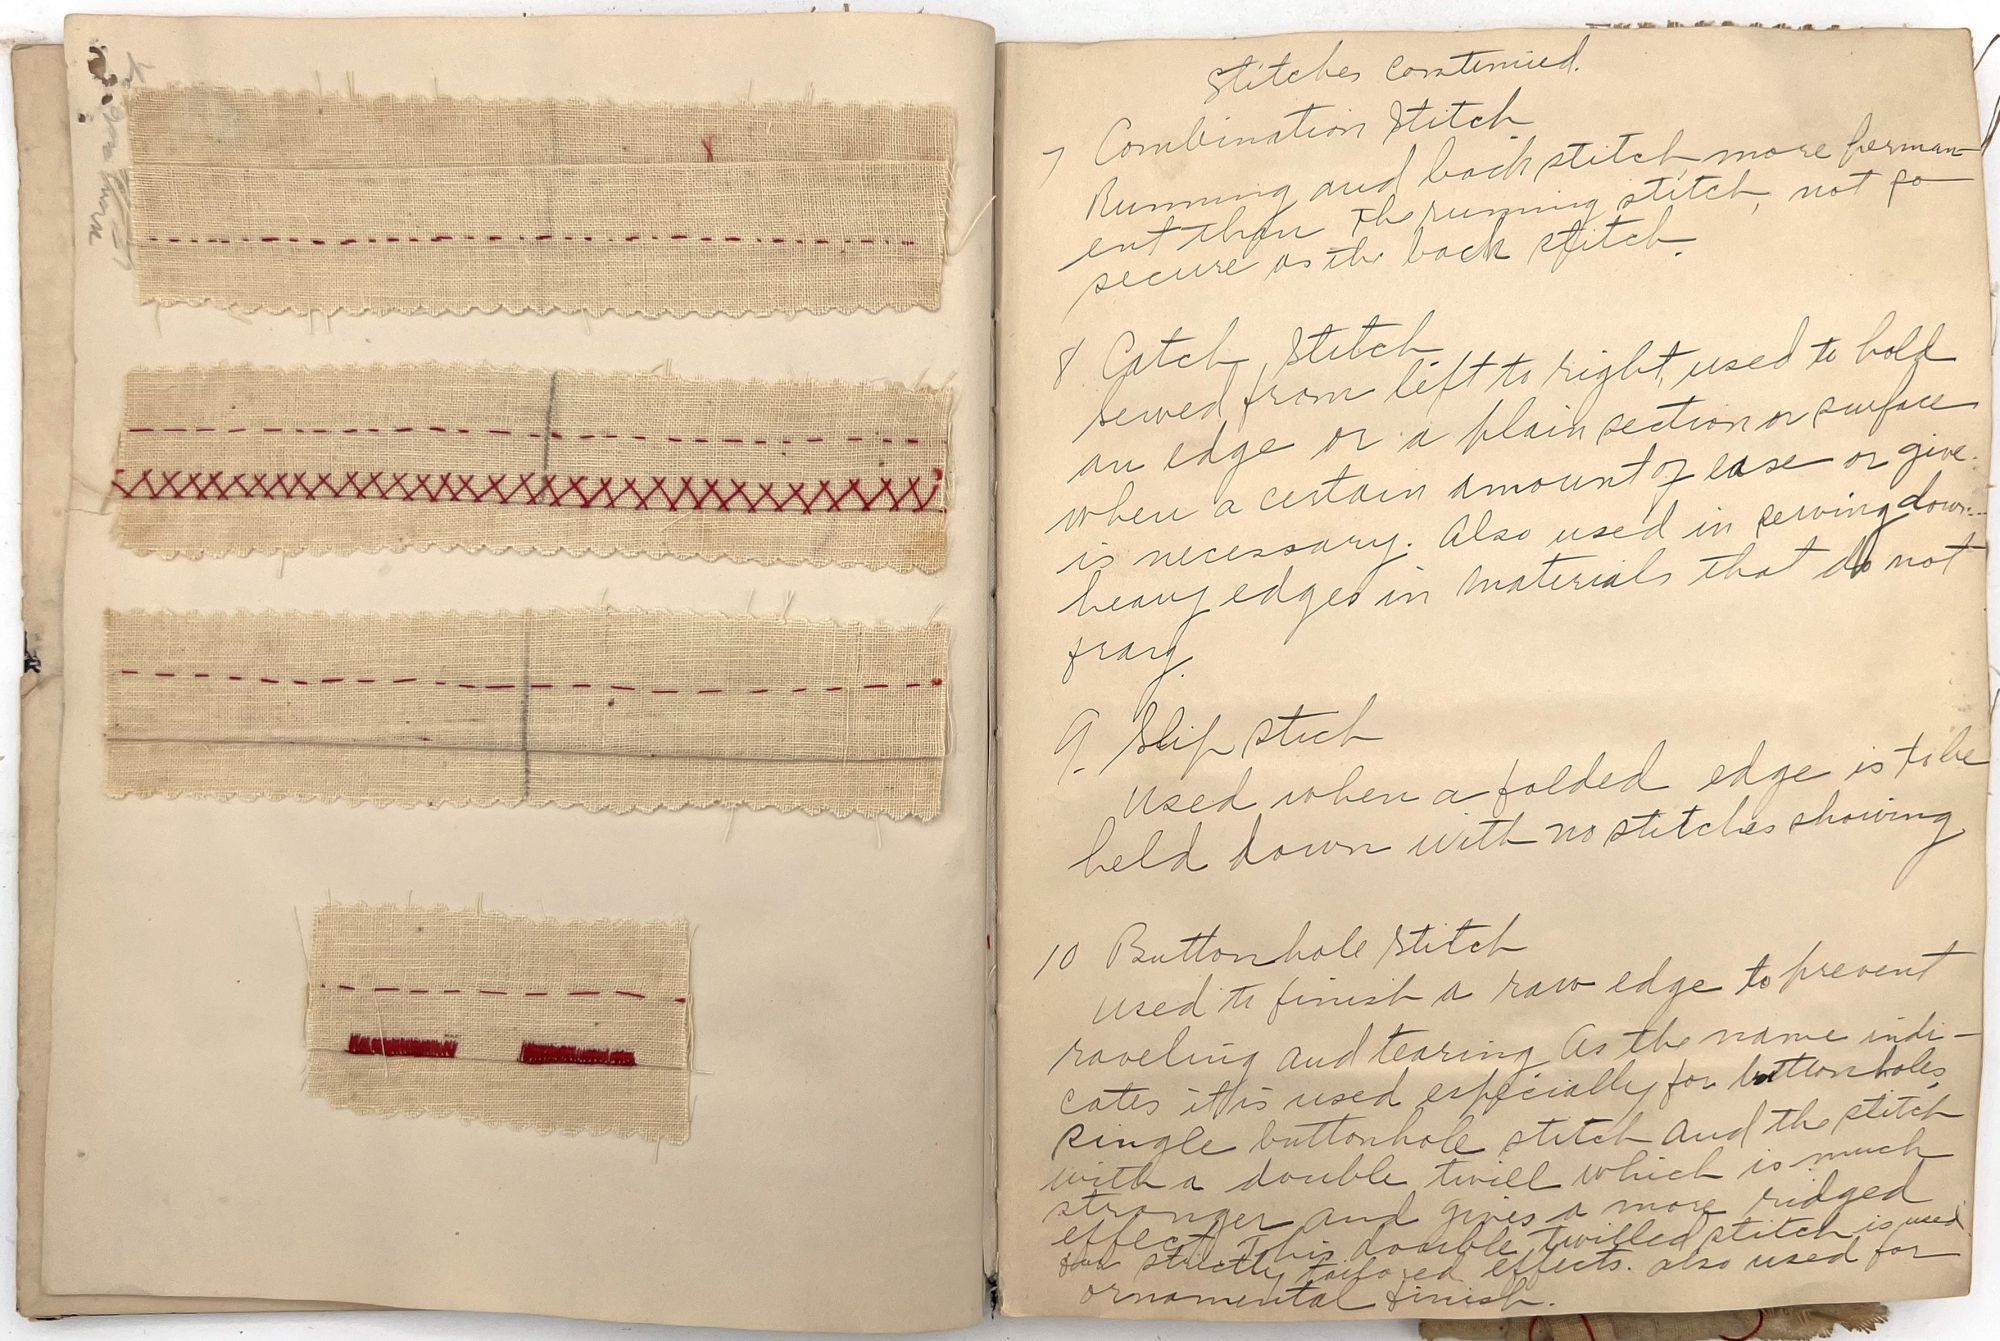 Stitches continued.
7 Combination Stitch
Running and back stitch, more perman-
ent than the running stitch, not so
secure as the back stitch.
8 Catch Stitch
Sewed from left to right, used to hold
an edge or a plain section or surface
when a certain amount of ease or give
is necessary. Also used in sewing down
heavy edges in materials that do not
fray.
9. Slip stich
Used when a folded edge is to be
held down with no stitches showing
10 Buttonhole Stitch
Used to finish a raw edge to prevent
raveling and tearing As the name indi-
cates it is used especially for buttonholes,
single buttonhole stitch and the stitch
with a double twill which is much
stronger and gives a more ridged
effect. This double twilled stitch is used
for strictly tailored effects. also used for
ornamental finish.